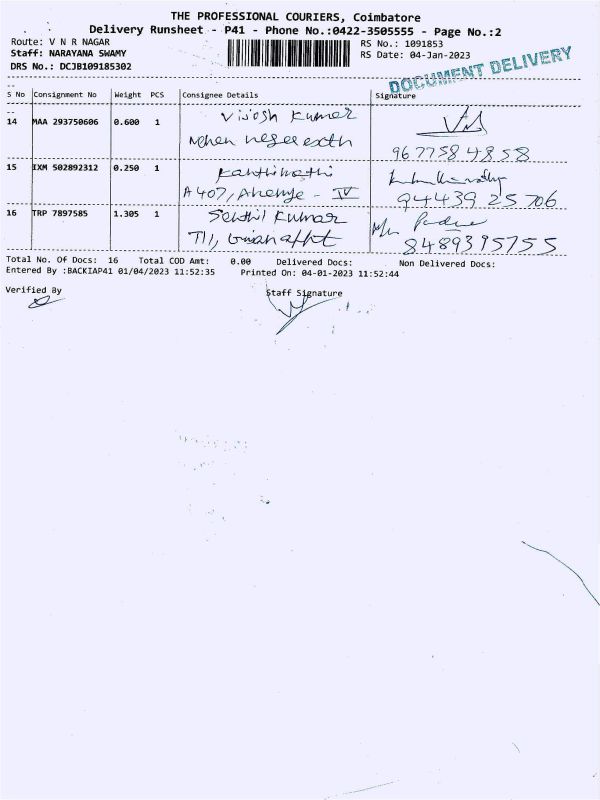 THE PROFESSIONAL COURIERS, Coimbatore
Delivery Runsheet - P41 - Phone No.:0422-3505555 - Page No.:2
Route: V N R NAGAR
RS No.: 1091853
Staff: NARAYANA SWAMY
RS Date: 04-Jan-2023
DRS No.: DCJB109185302
DOCUMENT DELIVERY
S No Consignment No Weight PCS Consignee Details Signature
14 MAA 293750606 0.600 1 Vijosh Kumar
9677584858
15 IXM 502892312 0.250 1 Kanthimathi
A 407, - IV 94439 25706
16 TRP 7897585 1.305 1 Senthil Kumar
T11, 8489395755
Total No. Of Docs: 16 Total COD Amt: 0.00 Delivered Docs: Non Delivered Docs:
Entered By :BACKIAP41 01/04/2023 11:52:35 Printed On: 04-01-2023 11:52:44
Verified By Staff Signature